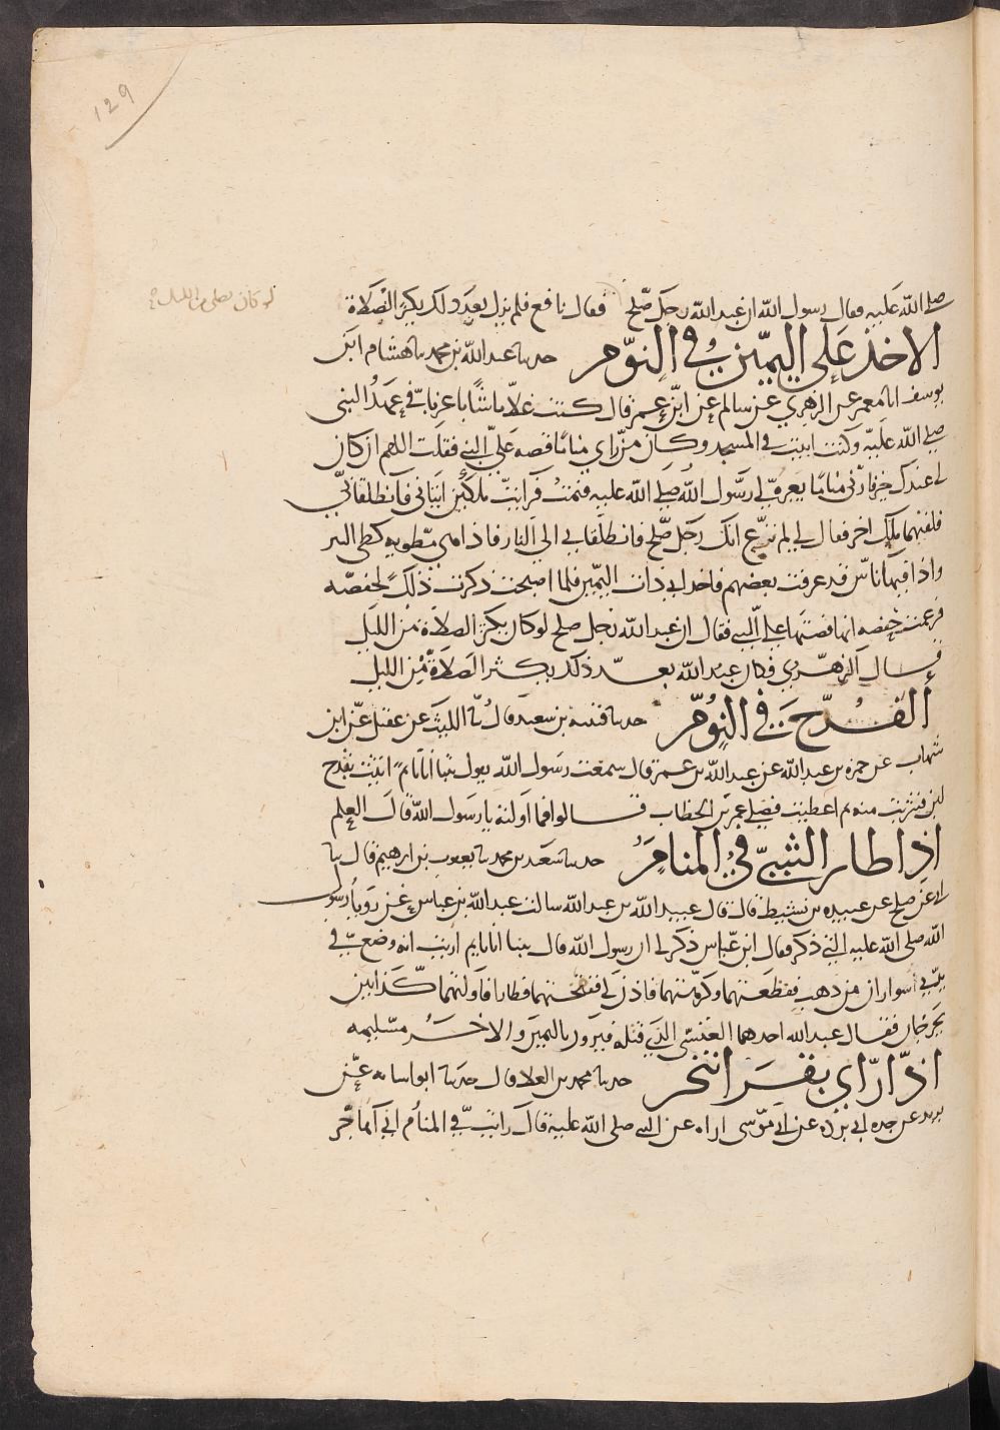 129
لو كان يصلي من الليل
صلى الله عليه فقال رسول الله ان عبد الله رجل صلح فقال نافع فلم يزل بعد ذلك يكثر الصلاة
الاخذ على اليمين في النوم حدثنا عبد الله بن محمد نا هشام ابن
يوسف انا معمر عن الزهري عن سالم عن ابن عمر قال كنت غلاما شابا عزبا في عهد النبي
صلى الله عليه وكنت ابيت في المسجد وكان من راى مناما قصه على النبي فقلت اللهم ان كان
لي عندك خير فارني مناما يعبره لي رسول الله صلى الله عليه فنمت فرايت ملكين اتياني فانطلقا بي
فلقيهما ملك اخر فقال لي لم ترع انك رجل صلح فانطلقا بي الى النار فاذا هي مطوية كطي البير
واذا فيها ناس قد عرفت بعضهم فاخذ بي ذات اليمين فلما اصبحت ذكرت ذلك لحفصه
فزعمت حفصه انها قصتها على النبي فقال ان عبد الله رجل صلح لو كان يكثر الصلاة من الليل
قال الزهري فكان عبد الله بعد ذلك يكثر الصلاة من الليل
القدح في النوم حدثنا قتيبة بن سعيد قال نا الليث عن عقيل عن ابن
شهاب عن حمزه بن عبد الله عن عبد الله بن عمر قال سمعت رسول الله يقول بينا انا نايم اتيت بقدح
لبن فشربت منه ثم اعطيت فضلي عمر بن الخطاب قالوا فما اولته يا رسول الله قال العلم
اذا طار الشيء في المنام حدثنا سعيد بن محمد نا يعقوب بن ابرهيم قال نا
ابي عن صلح عن عبيده بن نشيط قال قال عبيد الله بن عبد الله سالت عبد الله بن عباس عن رويا رسول
الله صلى الله عليه التي ذكر فقال ابن عباس ذكر لي ان رسول الله قال بينا انا نايم اريت انه وضع في
يدي اسواران من ذهب ففظعتهما وكرهتهما فاذن لي فنفختهما فطارا فاولتهما كذابين
يخرجان فقال عبد الله احدهما العنسي الذي قتله فيروز باليمن والاخر مسليمه
اذا راى بقرا تنحر حدثنا محمد بن العلا قال حدثنا ابو اسامه عن
بريد عن جده ابي برده عن ابي موسى اراه عن النبي صلى الله عليه قال رايت في المنام اني اهاجر